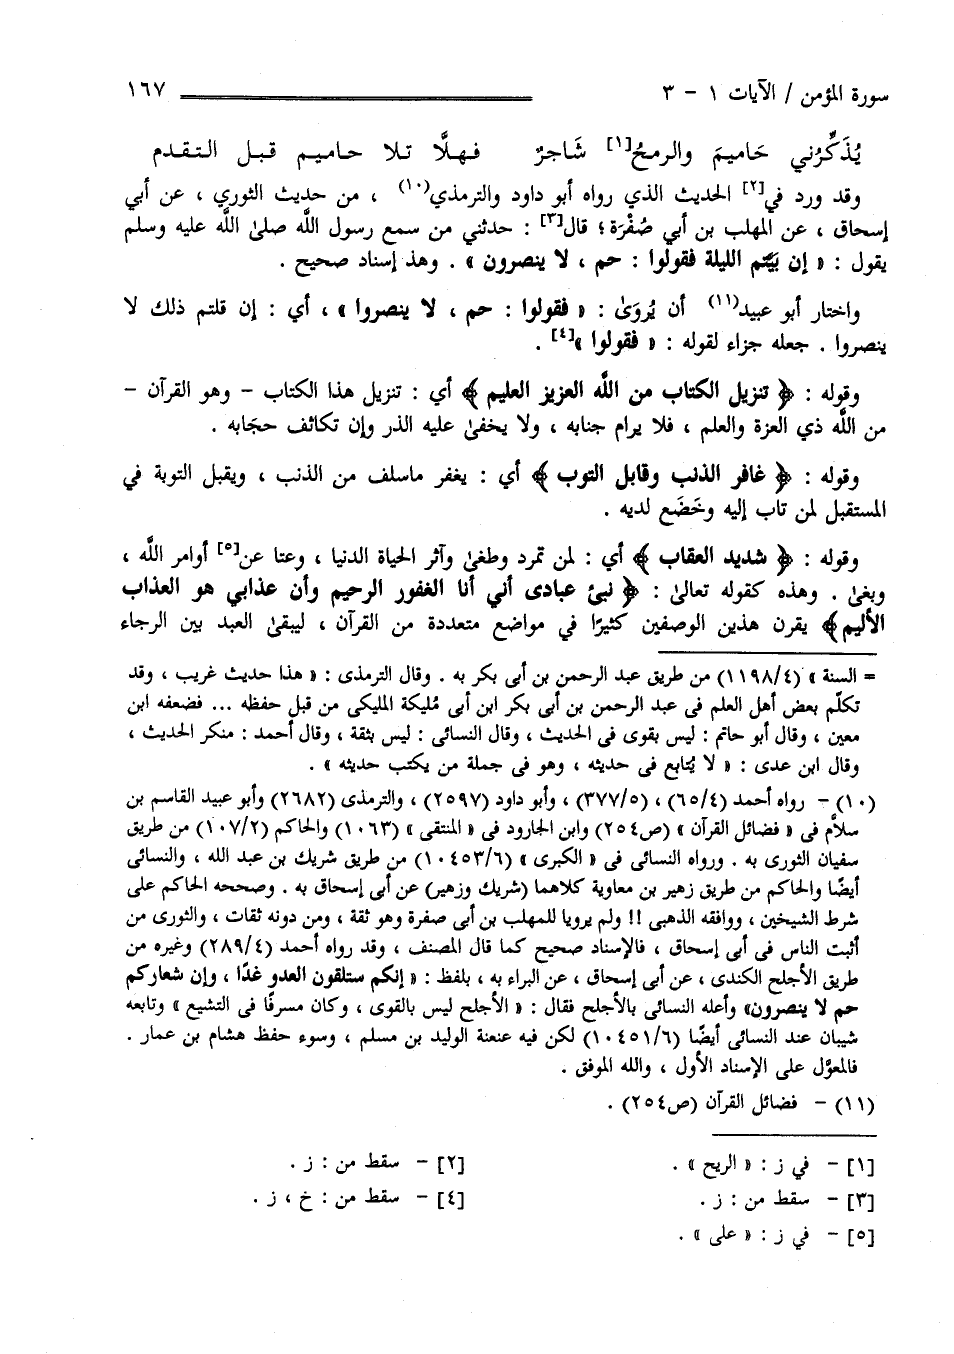 سورة المؤمن / الآيات ١ - ٣ ١٦٧
يُذَكِّرُني حَاميمَ والرمحُ[١] شَاجرٌ فهلَّا تلا حاميم قبل التقدم
وقد ورد في[٢] الحديث الذي رواه أبو داود والترمذي(١٠) ، من حديث الثوري ، عن أبي
إسحاق ، عن المهلب بن أبي صُفْرَة ؛ قال[٣] : حدثني من سمع رسول اللَّه صلىٰ اللَّه عليه وسلم
يقول : « إن بَيَّتم الليلة فقولوا : حم ، لا ينصرون » . وهذ إسناد صحيح .
واختار أبو عبيد(١١) أن يُروَىٰ : « فقولوا : حم ، لا ينصروا » ، أي : إن قلتم ذلك لا
ينصروا . جعله جزاء لقوله : « فقولوا »[٤] .
وقوله : ﴿ تنزيل الكتاب من اللَّه العزيز العليم ﴾ أي : تنزيل هذا الكتاب - وهو القرآن -
من اللَّه ذي العزة والعلم ، فلا يرام جنابه ، ولا يخفىٰ عليه الذر وإن تكاثف حجَابه .
وقوله : ﴿ غافر الذنب وقابل التوب ﴾ أي : يغفر ماسلف من الذنب ، ويقبل التوبة في
المستقبل لمن تاب إليه وخَضَع لديه .
وقوله : ﴿ شديد العقاب ﴾ أي : لمن تمرد وطغىٰ وآثر الحياة الدنيا ، وعتا عن[٥] أوامر اللَّه ،
وبغىٰ . وهذه كقوله تعالىٰ : ﴿ نبئ عبادى أني أنا الغفور الرحيم وأن عذابي هو العذاب
الأليم ﴾ يقرن هذين الوصفين كثيرًا في مواضع متعددة من القرآن ، ليبقىٰ العبد بين الرجاء
= السنة » (١١٩٨/٤) من طريق عبد الرحمن بن أبى بكر به . وقال الترمذى : « هذا حديث غريب ، وقد
تكلّم بعض أهل العلم فى عبد الرحمن بن أبى بكر ابن أبى مُليكة المليكى من قبل حفظه ... فضعفه ابن
معين ، وقال أبو حاتم : ليس بقوى فى الحديث ، وقال النسائى : ليس بثقة ، وقال أحمد : منكر الحديث ،
وقال ابن عدى : « لا يُتابع فى حديثه ، وهو فى جملة من يكتب حديثه » .
(١٠) - رواه أحمد (٦٥/٤) ، (٣٧٧/٥) ، وأبو داود (٢٥٩٧) ، والترمذى (٢٦٨٢) وأبو عبيد القاسم بن
سلاَّم فى « فضائل القرآن » (ص٢٥٤) وابن الجارود فى « المنتقى » (١٠٦٣) والحاكم (١٠٧/٢) من طريق
سفيان الثورى به . ورواه النسائى فى « الكبرى » (١٠٤٥٣/٦) من طريق شريك بن عبد الله ، والنسائى
أيضًا والحاكم من طريق زهير بن معاوية كلاهما (شريك وزهير) عن أبى إسحاق به . وصححه الحاكم على
شرط الشيخين ، ووافقه الذهبى !! ولم يرويا للمهلب بن أبى صفرة وهو ثقة ، ومن دونه ثقات ، والثورى من
أثبت الناس فى أبى إسحاق ، فالإسناد صحيح كما قال المصنف ، وقد رواه أحمد (٢٨٩/٤) وغيره من
طريق الأجلح الكندى ، عن أبى إسحاق ، عن البراء به ، بلفظ : « إنكم ستلقون العدو غدًا ، وإن شعاركم
حم لا ينصرون» وأعله النسائى بالأجلح فقال : « الأجلح ليس بالقوى ، وكان مسرفًا فى التشيع » وتابعه
شيبان عند النسائى أيضًا (١٠٤٥١/٦) لكن فيه عنعنة الوليد بن مسلم ، وسوء حفظ هشام بن عمار .
فالمعوَّل على الإسناد الأول ، والله الموفق .
(١١) - فضائل القرآن (ص٢٥٤) .
[١] - في ز : « الريح » . [٢] - سقط من : ز .
[٣] - سقط من : ز . [٤] - سقط من : خ ، ز .
[٥] - في ز : « على » .